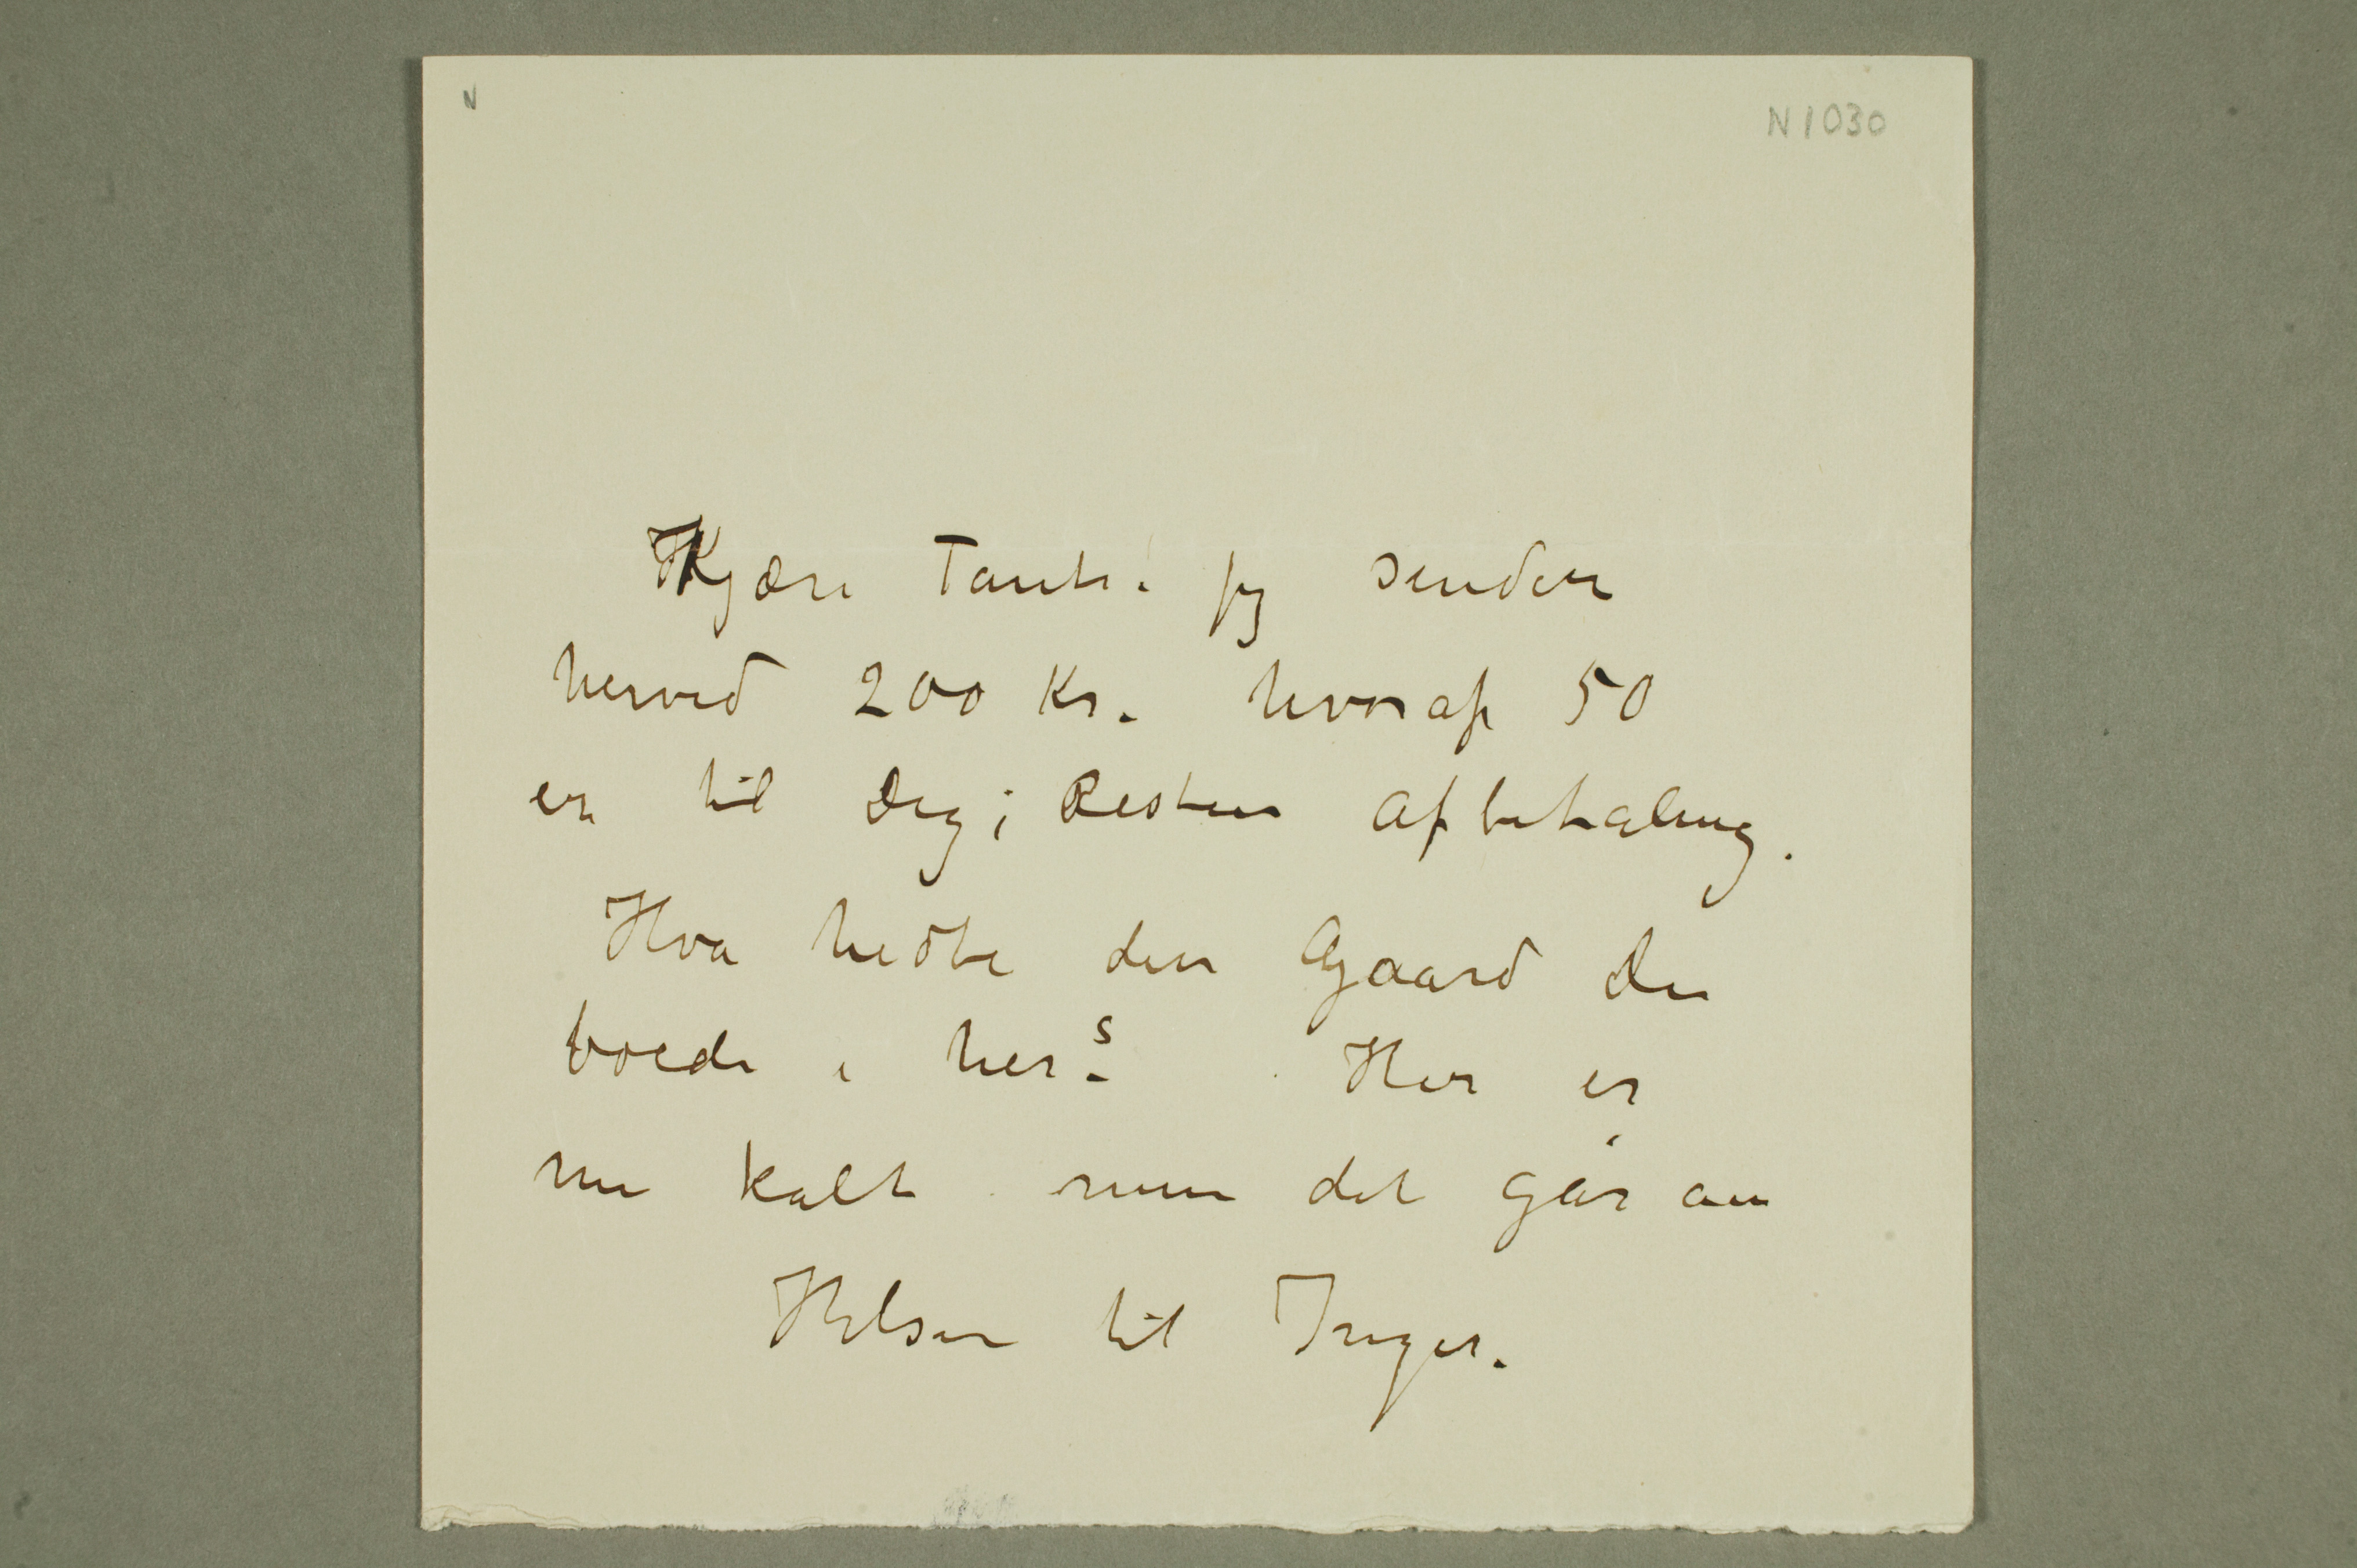 N
N1030
Kjære Tante. Jeg sender
herved 200 Kr. hvoraf 50
er til Dig; Resten Afbetaling.
Hva hedte den Gaard Du
boede i her? Her er
nu kalt men det går an
Hilsen til Inger.